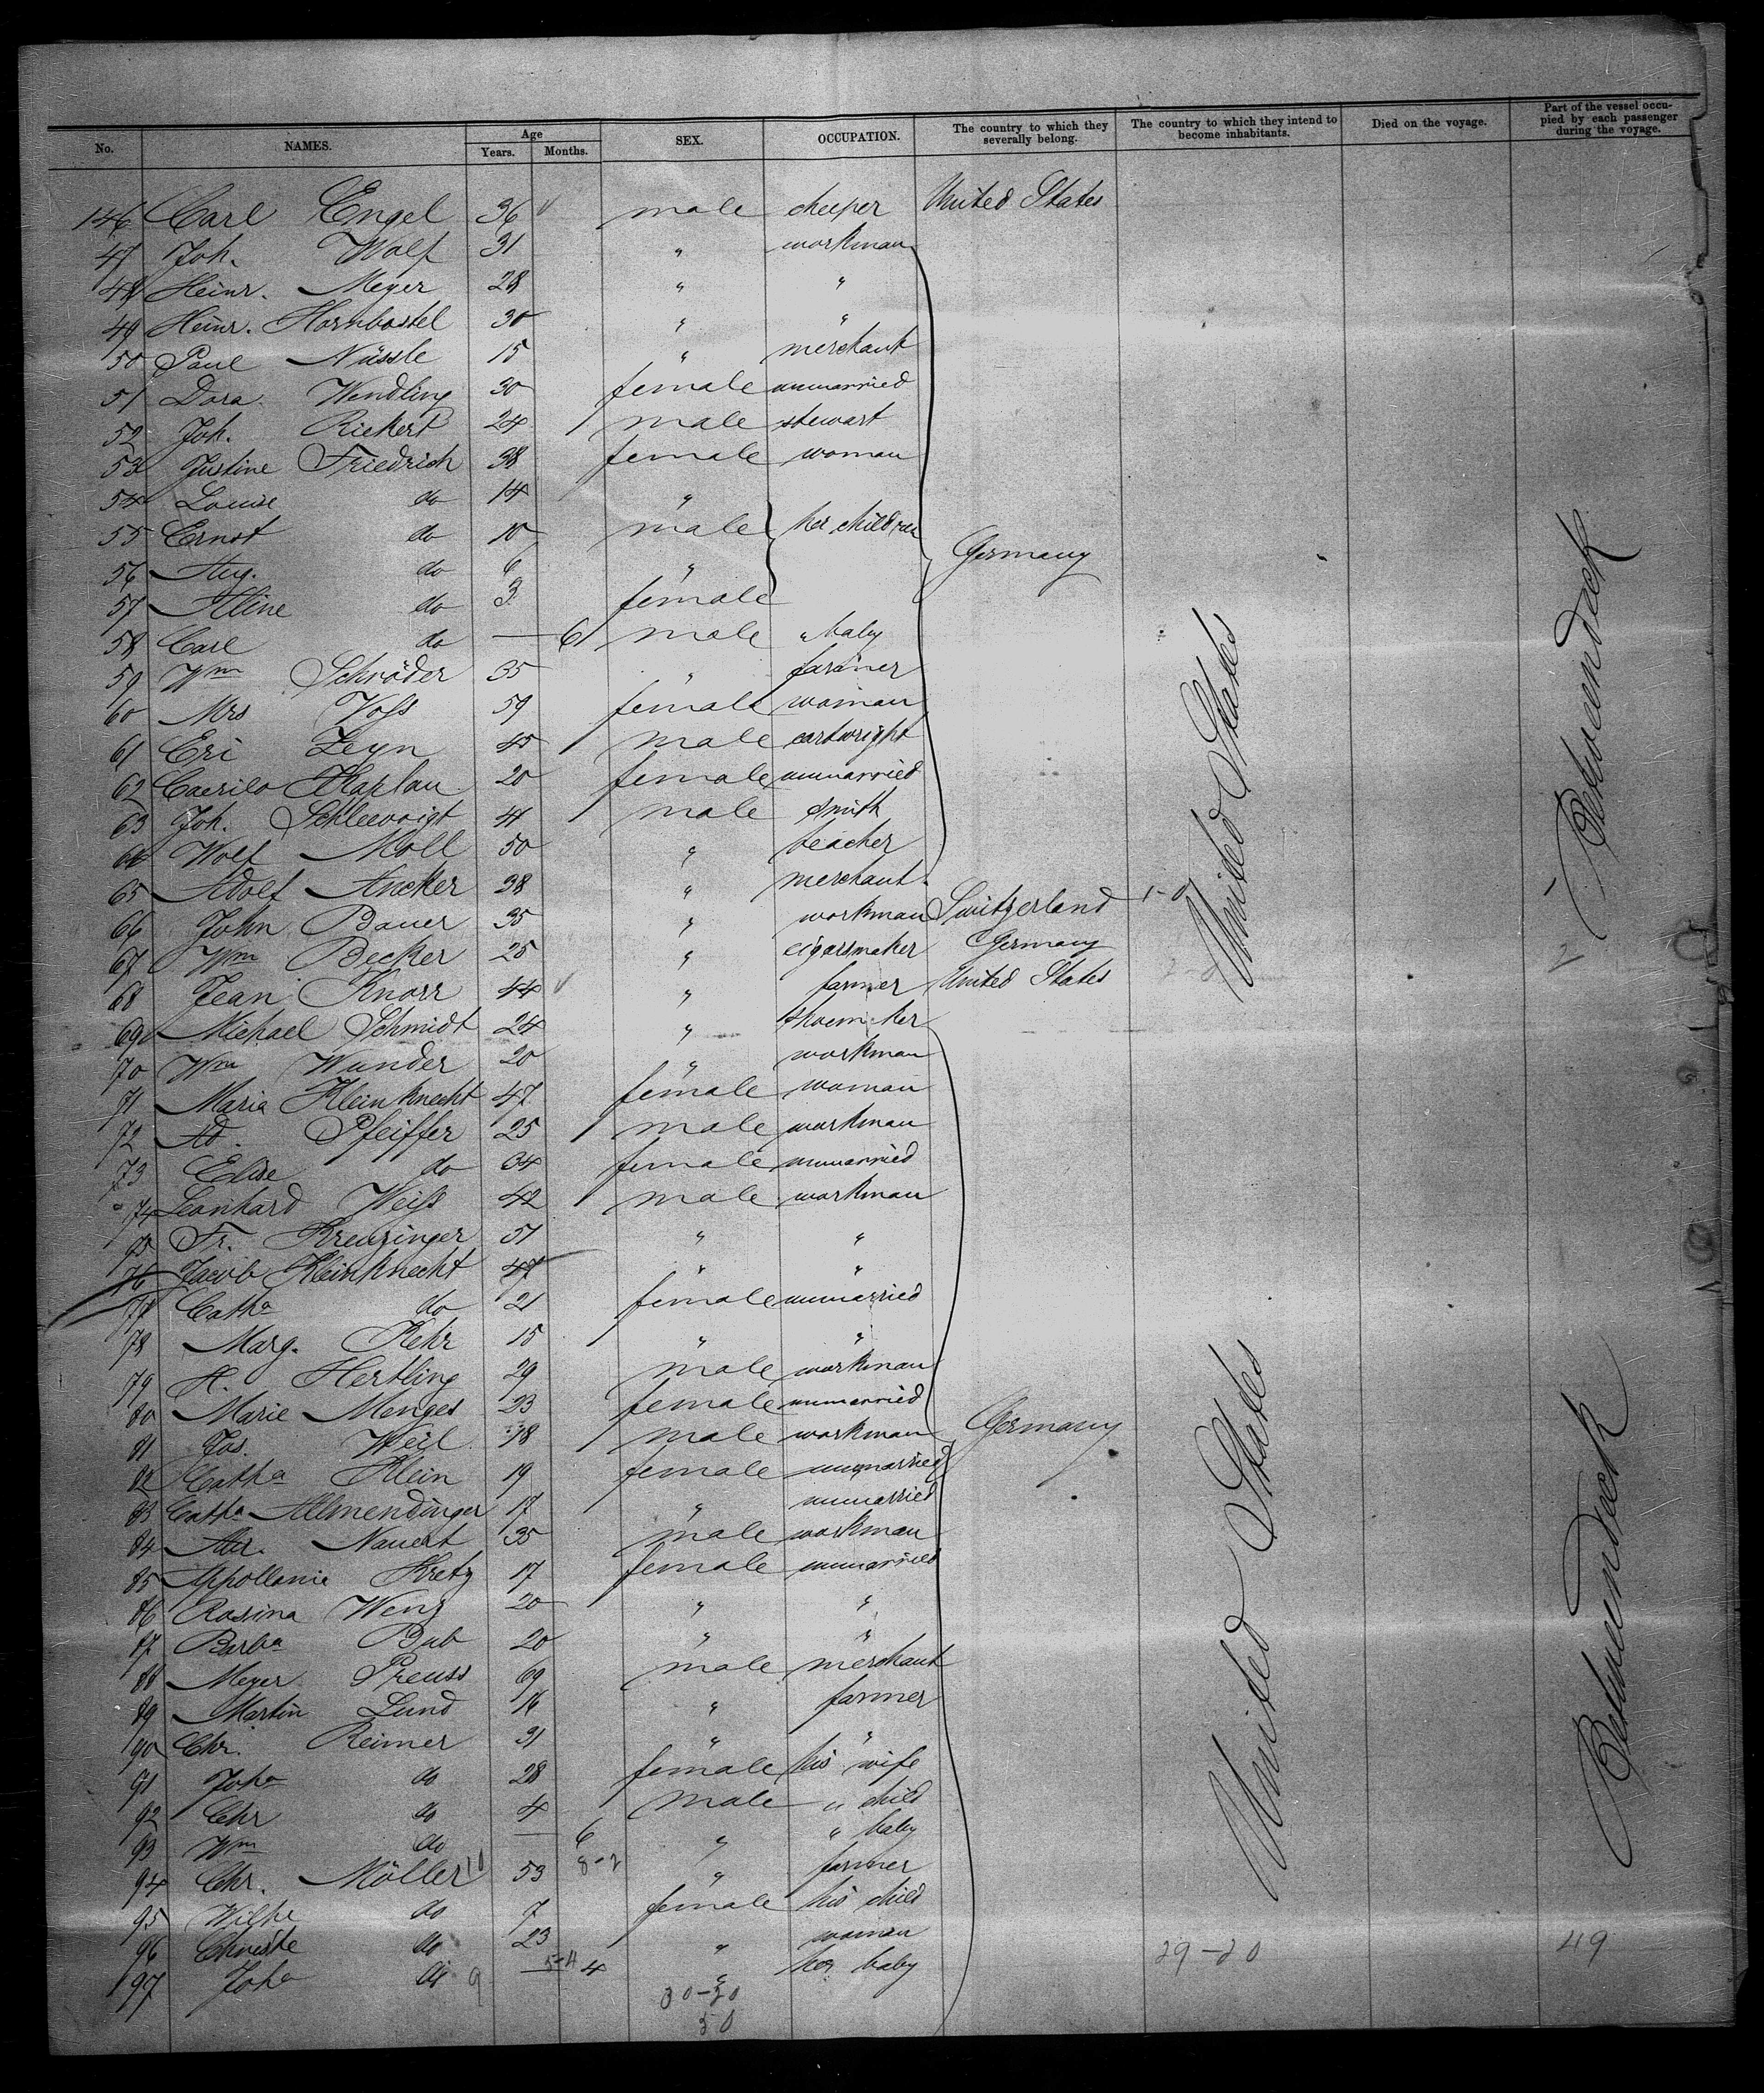 No. NAMES. Age Years. Months. SEX. OCCUPATION. The country to which they severally belong. The country to which they intend to become inhabitants. Died on the voyage. Part of the vessel occupied by each passenger during the voyage.
146 Carl Engel 36 male United States
47 Joh. Wolf 31 " workman
48 Heinr. Meyer 28 " "
49 Heinr. Hornbostel 30 " "
50 Paul Nüssle 15 " merchant
51 Dora Wendling 30 female unmarried
52 Joh. Riekert 24 male stewart
53 Justine Friedrich 38 female woman
54 Louise do 14 "
55 Ernst do 10 male her children
56 Aug. do 6 " Germany
57 Aline do 3 female
58 Carl do — 6 male " baby
59 Wm Schröder 35 " farmer
60 Mrs Voss 59 female woman
61 Eri Zeyn 45 male cartwright
62 Kaplan 20 female unmarried
63 Joh. Schleevoigt 41 male smith
64 Wolf Moll 50 " teacher
65 Adolf Ancker 38 " merchant
66 John Bauer 35 " workman Switzerland
67 Wm Becker 25 " cigarsmaker Germany
68 Jean Knorr 44 " farmer United States
69 Michael Schmidt 24 "
70 Wm Wunder 20 " workman
71 Maria Kleinknecht 47 female woman
72 Ad. Pfeiffer 25 male workman
73 Elise do 34 female unmarried
74 Leonhard Weiss 42 male workman
75 Fr. Kreuzinger 51 " "
76 Jacob Kleinknecht 47 " "
77 Catha do 21 female unmarried
78 Marg. Kehr 15 " "
79 H. Hertling 29 male workman
80 Marie Menges 23 female unmarried
81 Jos. Weil 18 male workman Germany
82 Catha Klein 19 female unmarried
83 Catha Allmendinger 17 " unmarried
84 Nauert 35 male workman
85 Appollonia Kretz 17 female unmarried
86 Rosina Wenz 20 " "
87 Barba Bub 20 " "
88 Meyer Preuss 69 male merchant
89 Martin Lund 16 " farmer
90 Chr. Reimer 31 " "
91 Joha do 28 female his wife
92 Chr do 4 male " child
93 Wm do — 6 " " baby
94 Chr. Möller 53 " farmer
95 Wilhe do 7 female his child
96 do 23 " woman
197 Joha do — 4 " her baby
United States
United States
Betweendeck
Betweendeck
29-20
49
30-20
50